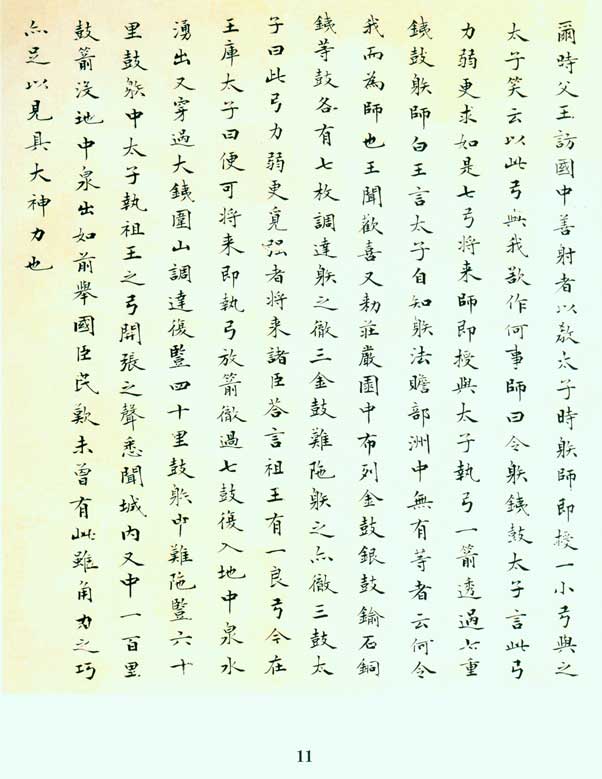 爾時父王訪國中善射者以教太子時躲師即授一小弓與之
太子笑云以此弓與我欲作何事師曰令躲銕鼓太子言此弓
力弱更求如是七弓將来師即授與太子執弓一箭透過七重
銕鼓躲師白王言太子自知躲法瞻部洲中無有等者云何令
我而為師也王聞歡喜又勅莊嚴園中布列金鼓銀鼓鍮石銅
銕等鼓各有七枚調達躲之徹三金鼓難陁躲之亦徹三鼓太
子曰此弓力弱更覓强者将来諸臣荅言祖王有一良弓今在
王庫太子曰便可将来即執弓放箭徹過七鼓復入地中泉水
湧出又穿過大銕圍山調達復竪四十里鼓躲中難陁竪六十
里鼓躲中太子執祖王之弓開張之聲悉聞城内又中一百里
鼓箭没地中泉出如前舉國臣民歎未曾有此雖角力之巧
亦足以見具大神力也
11